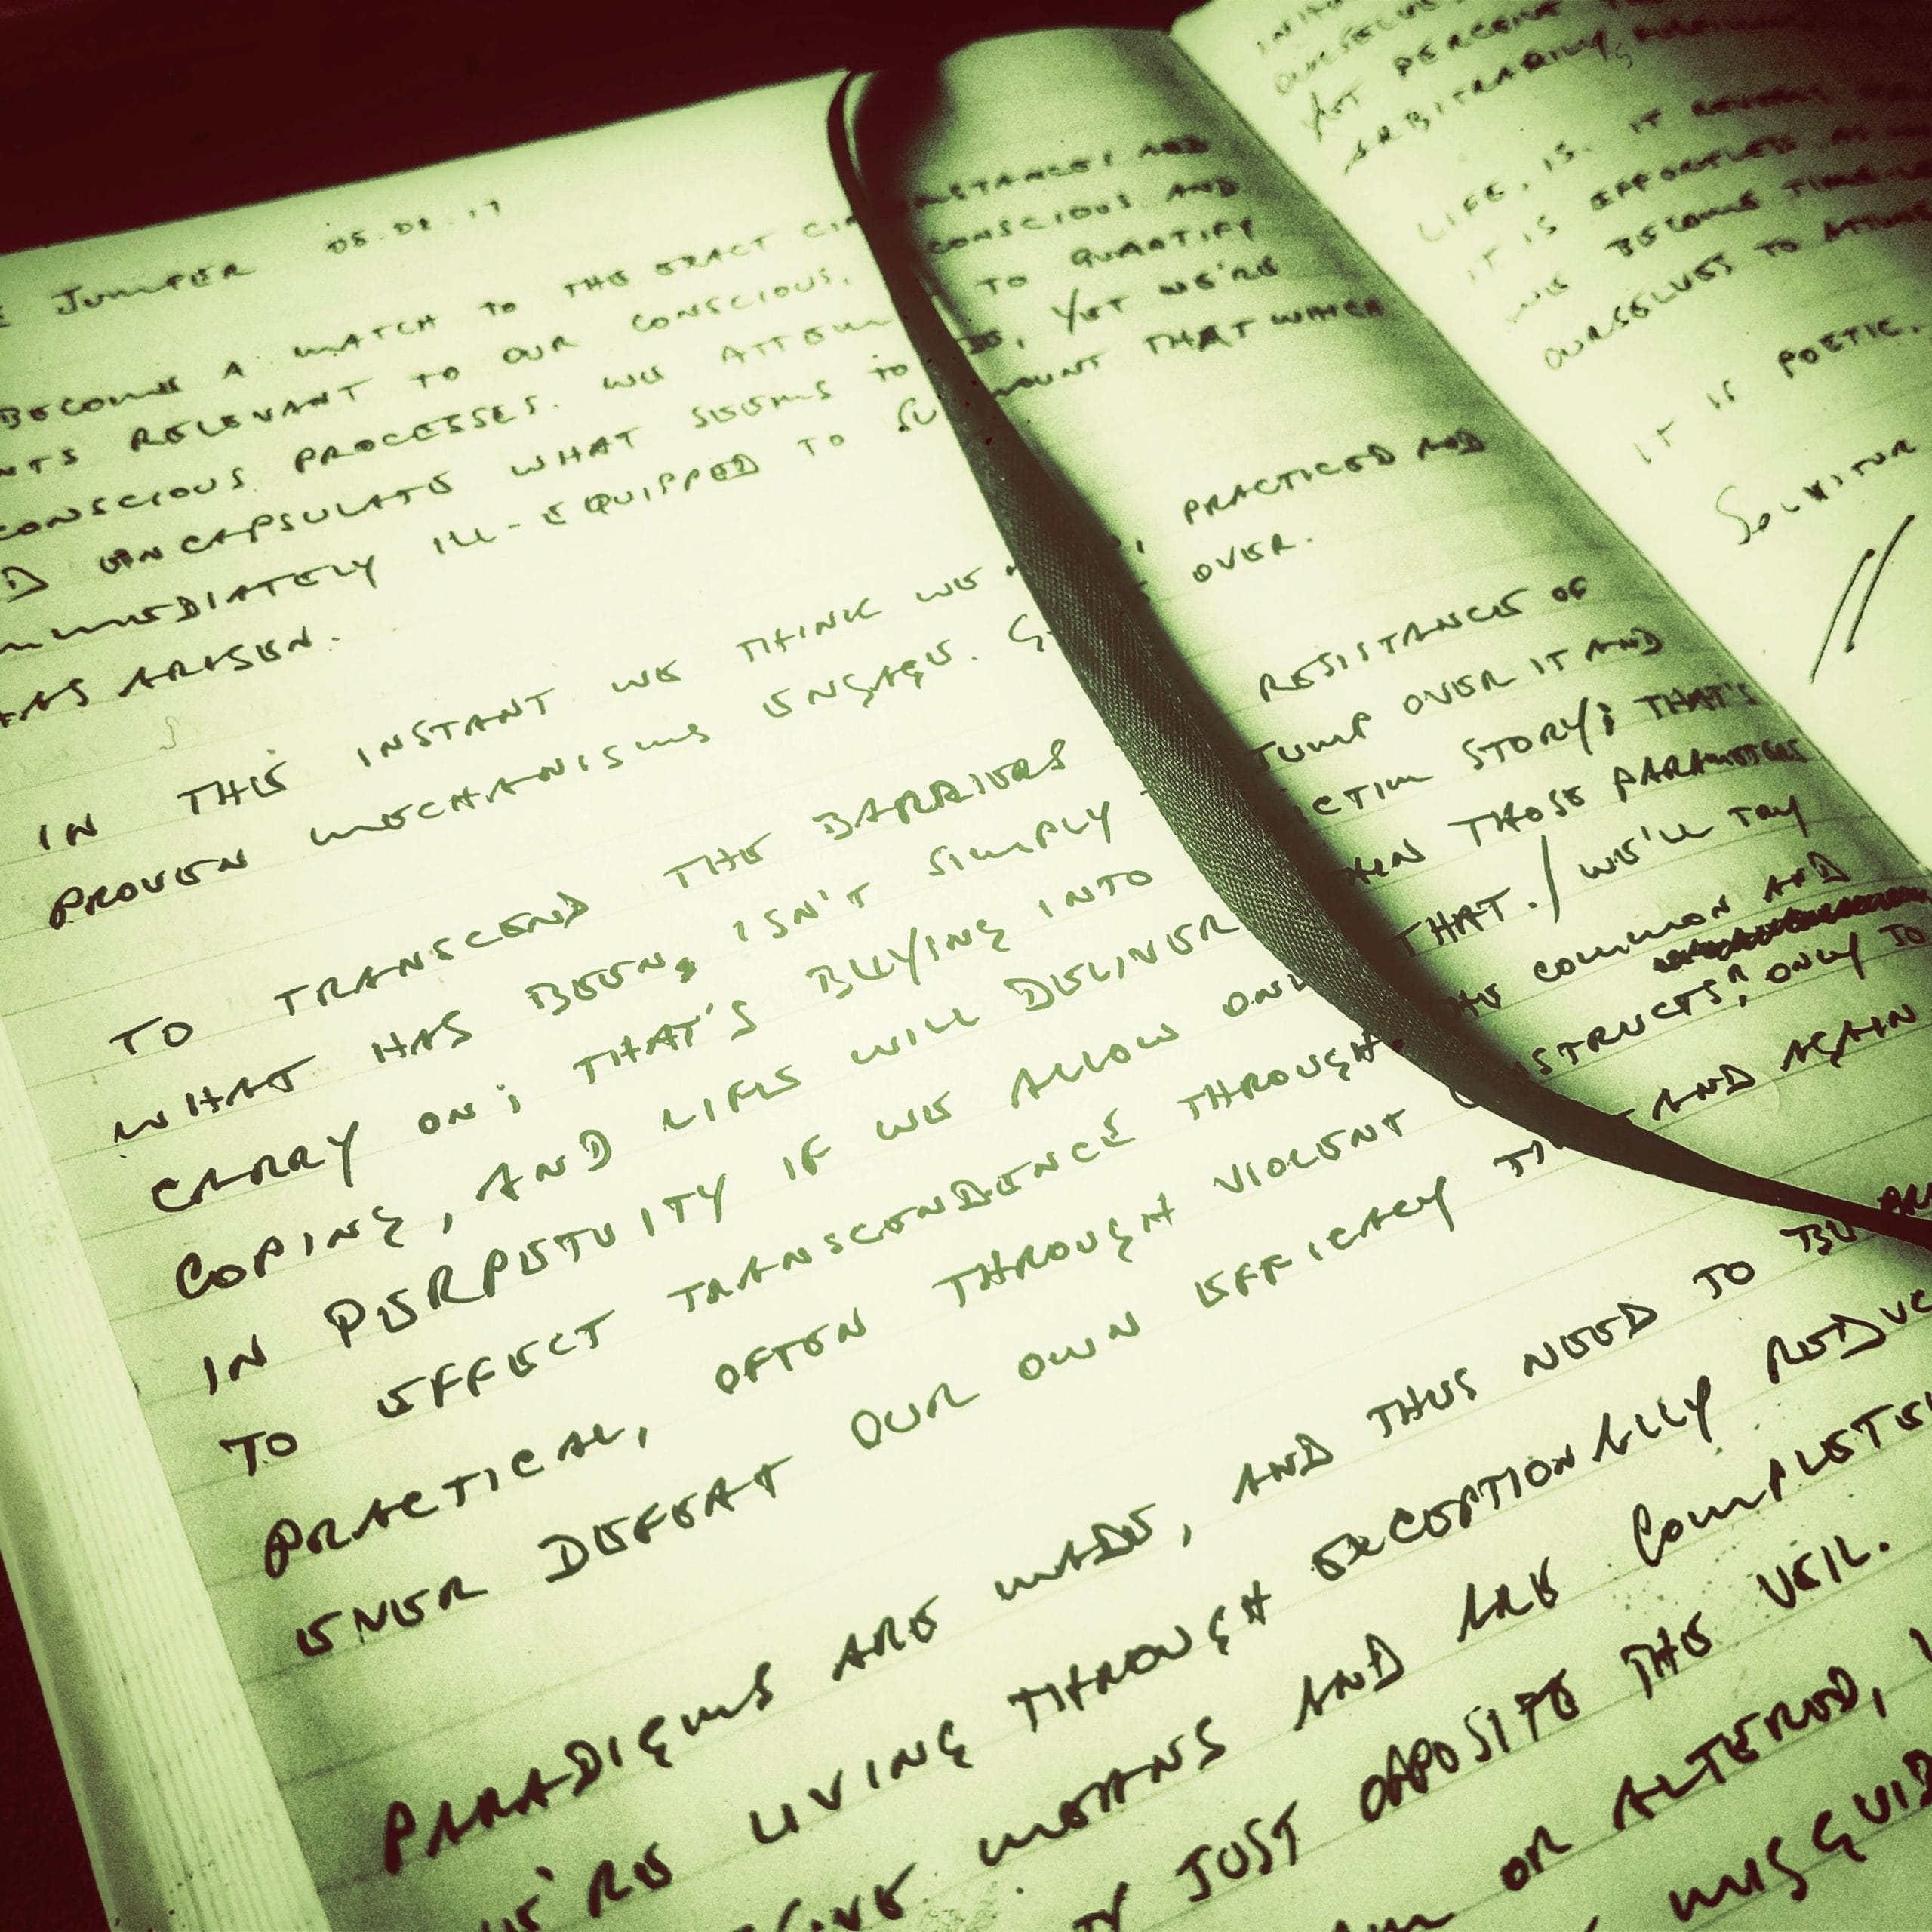 JUMPER 05.08.17
BECOME A MATCH TO THE EXACT AND
RELEVANT TO OUR CONSCIOUS, CONSCIOUS AND
CONSCIOUS PROCESSES. WE TO QUANTIFY
ENCAPSULATE WHAT SEEMS TO YET WE'RE
ILL-EQUIPPED TO THAT WHICH
ARISEN.
IN THIS INSTANT WE THINK WE PRACTICED AND
PROVEN MECHANISMS ENGAGE. OVER.
TO TRANSCEND THE BARRIERS RESISTANCE OF
WHAT HAS BEEN, ISN'T SIMPLY JUMP OVER IT AND
CARRY ON; THAT'S BUYING INTO STORY; THAT'S
COPING, AND LIFE WILL DELIVER THOSE PARAMETERS
IN PERPETUITY IF WE ALLOW THAT. / WE'LL TRY
TO EFFECT TRANSCENDENCE THROUGH COMMON AND
PRACTICAL, OFTEN THROUGH VIOLENT ONLY TO
EVER DEFEAT OUR OWN EFFICACY AND AGAIN
PARADIGMS ARE MADE, AND THUS NEED TO BE
LIVING THROUGH EXCEPTIONALLY
MEANS AND ARE
JUST OPPOSITE THE VEIL.
OR ALTERED,
YET
ARBITRARILY,
LIFE, IS. IT
IT IS EFFORTLESS AS
WE BECOME
OURSELVES TO
IT IS POETIC.